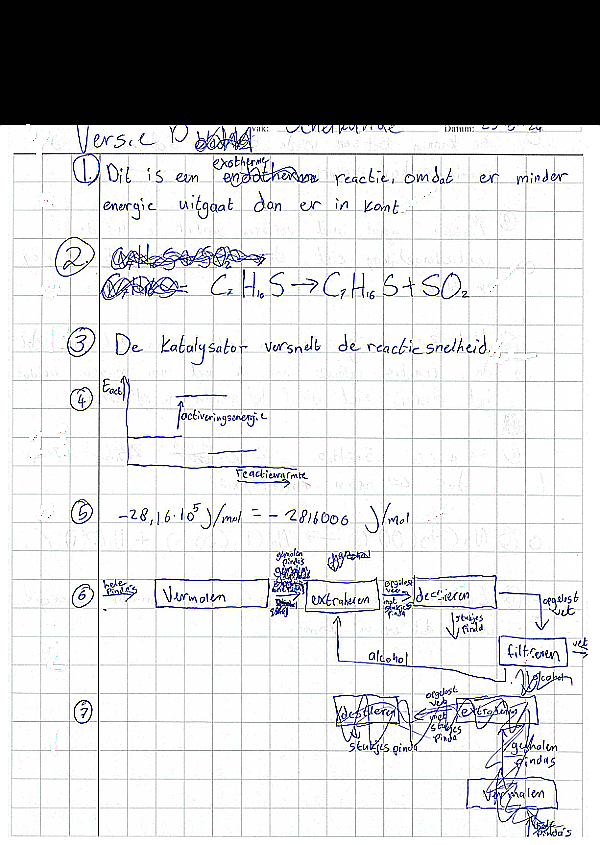 Versie B vak: Scheikunde Datum:
① Dit is een exotherme reactie, omdat er minder
energie uitgaat dan er in komt.
②
C₇H₁₆S → C₇H₁₆S + SO₂
③ De katalysator versnelt de reactiesnelheid.
④ Eact
activeringsenergie
reactiewarmte
⑤ -28,16·10⁵ J/mol = -2816000 J/mol
⑥ hele pinda's
Vermalen
gemalen pinda's
extraheren
opgelost vet met stukjes pinda
stukjes pinda
opgelost vet
filtreren
vet
alcohol
alcohol
⑦
destileren
opgelost vet met stukjes pinda
extraheren
stukjes pinda
gemalen pindas
Vermalen
hele pinda's